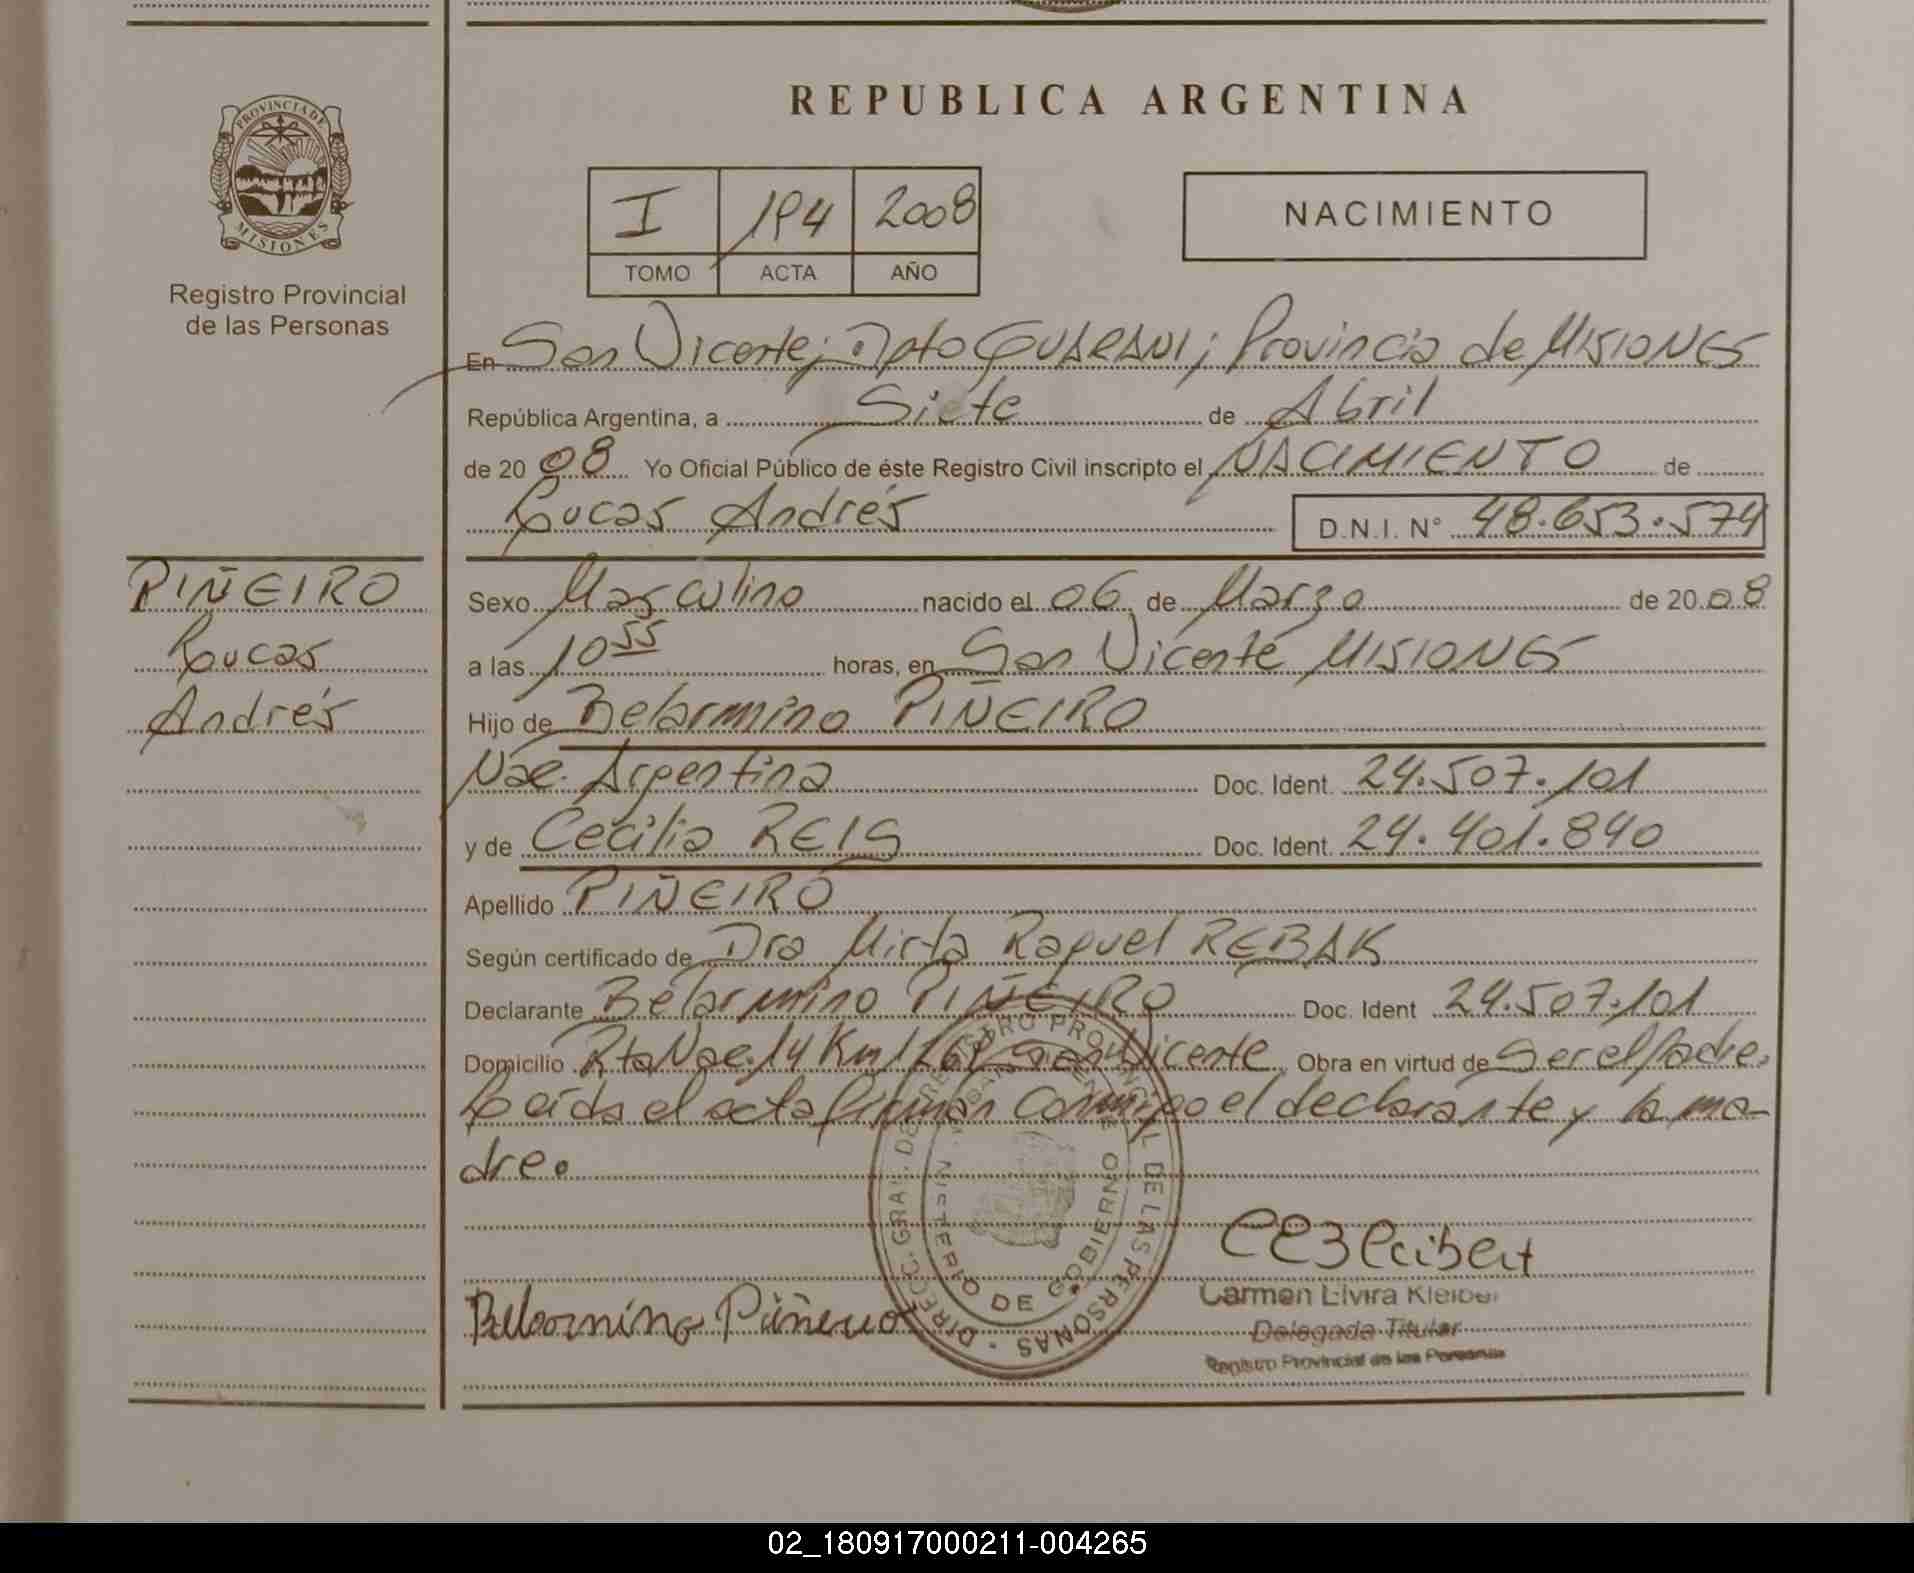 PROVINCIA DE
MISIONES
Registro Provincial
de las Personas
REPUBLICA ARGENTINA
I 194 2008
TOMO ACTA AÑO
NACIMIENTO
En San Vicente; Dpto GUARANI; Provincia de MISIONES
República Argentina, a Siete de Abril
de 20 08 Yo Oficial Público de éste Registro Civil inscripto el NACIMIENTO de
Lucas Andrés D.N.I. N° 48.653.574
PIÑEIRO
Lucas
Andrés
Sexo Masculino nacido el 06 de Marzo de 20 08
a las 10 55 horas, en San Vicente MISIONES
Hijo de Belarmino PIÑEIRO
Nac. Argentina Doc. Ident. 24.507.101
y de Cecilia REIS Doc. Ident. 24.401.840
Apellido PIÑEIRO
Según certificado de Dra Mirta Raquel REBAK
Declarante Belarmino PIÑEIRO Doc. Ident 24.507.101
Domicilio Rta Nac. 14 Km San Vicente Obra en virtud de Ser el Padre.
Leída el acta firman Conmigo el declarante y la ma-
dre.
DIRECC. GRAL. DE REGISTRO PROVINCIAL DE LAS PERSONAS
MINISTERIO DE GOBIERNO
Carmen Elvira Kleiber
Delegada Titular
Registro Provincial de las Personas
Belarmino Piñeiro
02_180917000211-004265